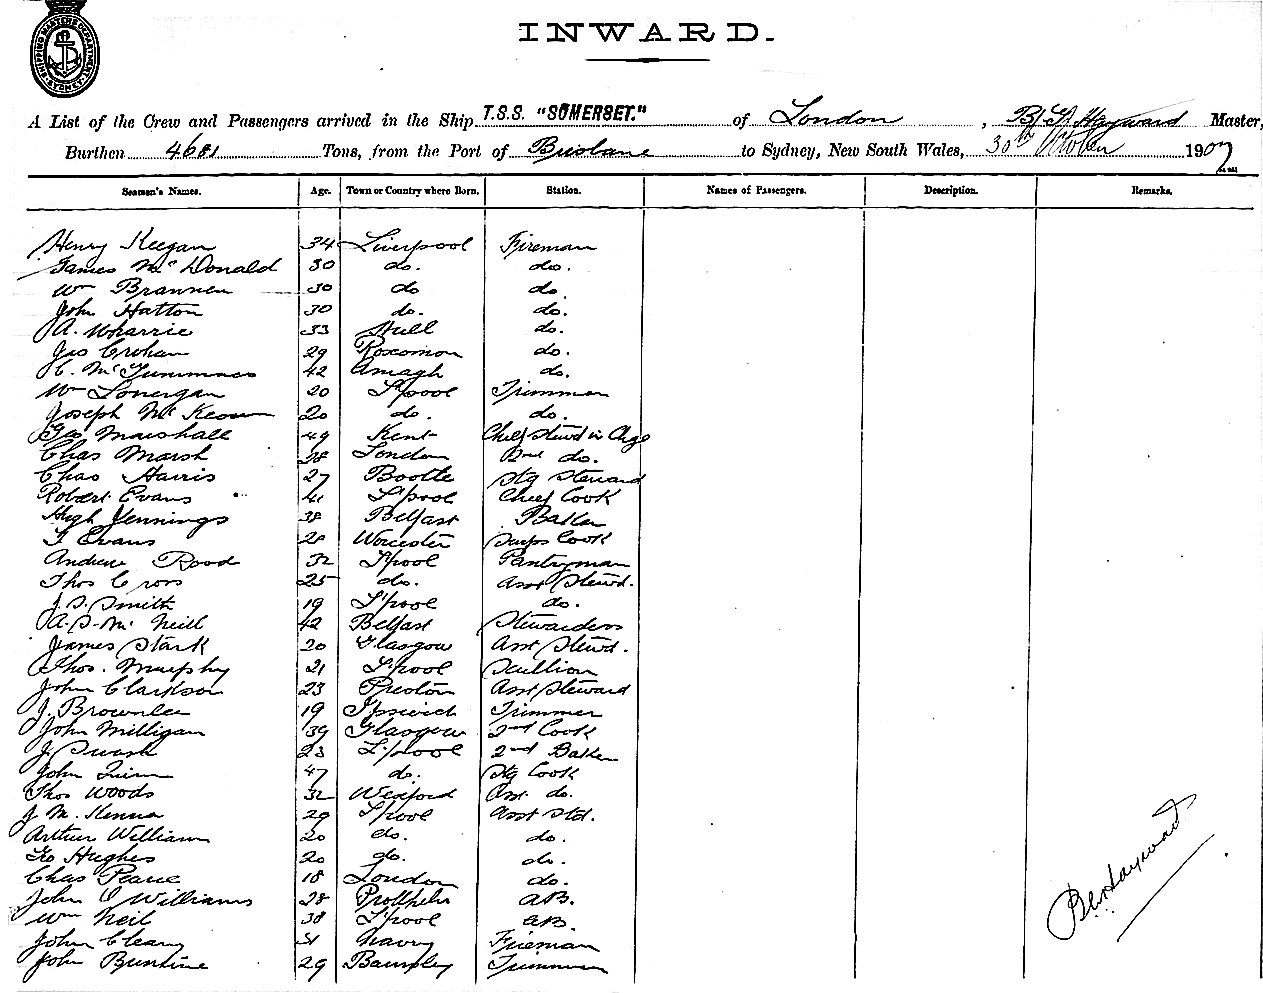 SHIPPING MASTERS DEPARTMENT SYDNEY
INWARD.
A List of the Crew and Passengers arrived in the Ship T.S.S. "SOMERSET." of London, Hayward Master,
Burthen 4681 Tons, from the Port of Brisbane to Sydney, New South Wales, 30th October 1907
Seamen's Names. Age. Town or Country where Born. Station. Names of Passengers. Description. Remarks.
Henry Keegan 34 Liverpool Fireman
James McDonald 30 do. do.
Wm Brannen 30 do do.
John Hatton 30 do. do.
A. Wharrie 33 Hull do.
Geo Croham 29 Roscomon do.
C. Mc 42 Amagh do.
Wm Lonergan 20 L'pool Trimmer
Joseph McKeown 20 do. do.
Geo Marshall 49 Kent Chief Stewd in Chge
Chas Marsh 28 London 2nd do.
Chas Harris 27 Bootle Stg Steward
Robert Evans 41 L'pool Chief Cook
Hugh Jennings 38 Belfast Baker
T Evans 28 Worcester Ships Cook
Andrew Rood 32 L'pool Pantryman
Thos Cross 25 do. Asst Stewd.
J. S. Smith 19 L'pool do.
A. S. McNeill 42 Belfast Stewardess
James Stark 20 Glasgow Asst Stewd.
Thos. Murphy 21 L'pool Scullion
John Clarkson 23 Preston Asst Steward
J. Brownlee 19 Ipswich Trimmer
John Milligan 39 Glasgow 2nd Cook
J. Swash 23 L'pool 2nd Baker
John Quinn 47 do. Stg Cook
Thos Woods 32 Wexford Asst. do.
J. McKenna 29 L'pool Asst Std.
Arthur William 20 do. do.
Geo Hughes 20 do. do.
Chas Pearce 18 London do.
John O Williams 28 Pwllheli A.B.
Wm Neil 38 L'pool A.B.
John Cleary 31 Navvy Fireman
John Buntine 29 Trimmer
Hayward